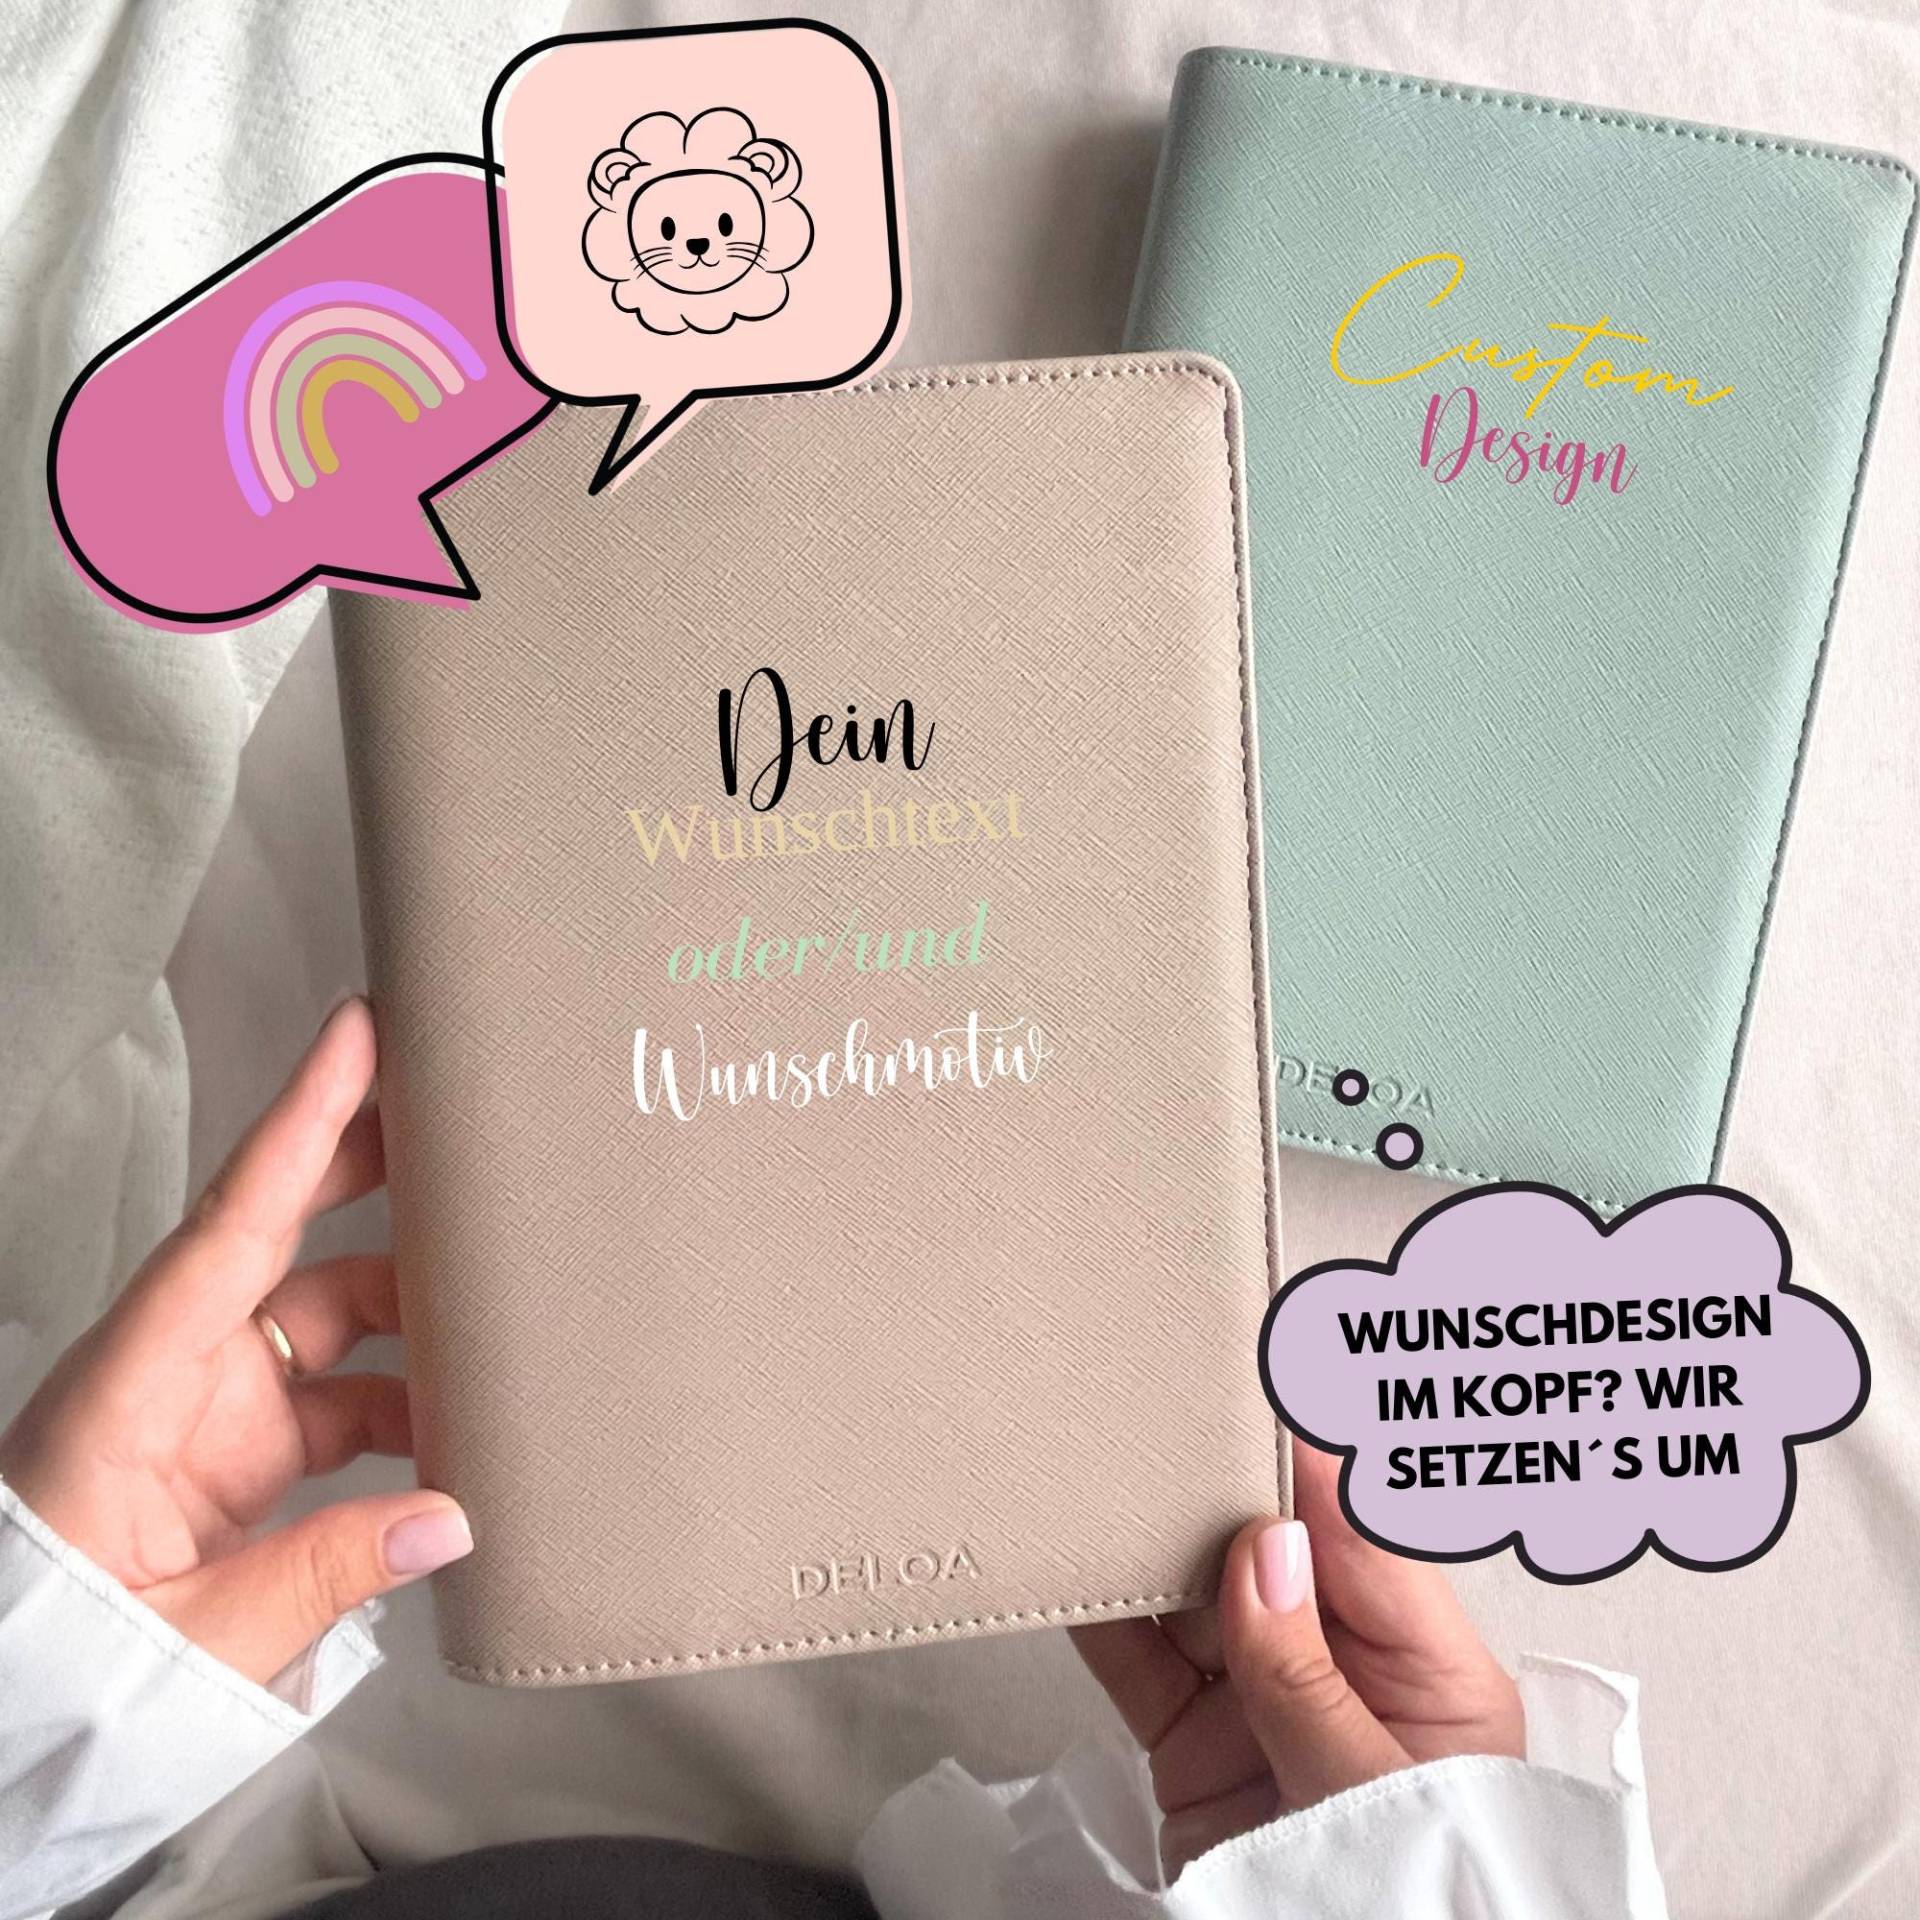 Custom
Design
Dein
Wunschtext
oder/und
Wunschmotiv
DÉLOA
WUNSCHDESIGN
IM KOPF? WIR
SETZEN´S UM
DÉLOA